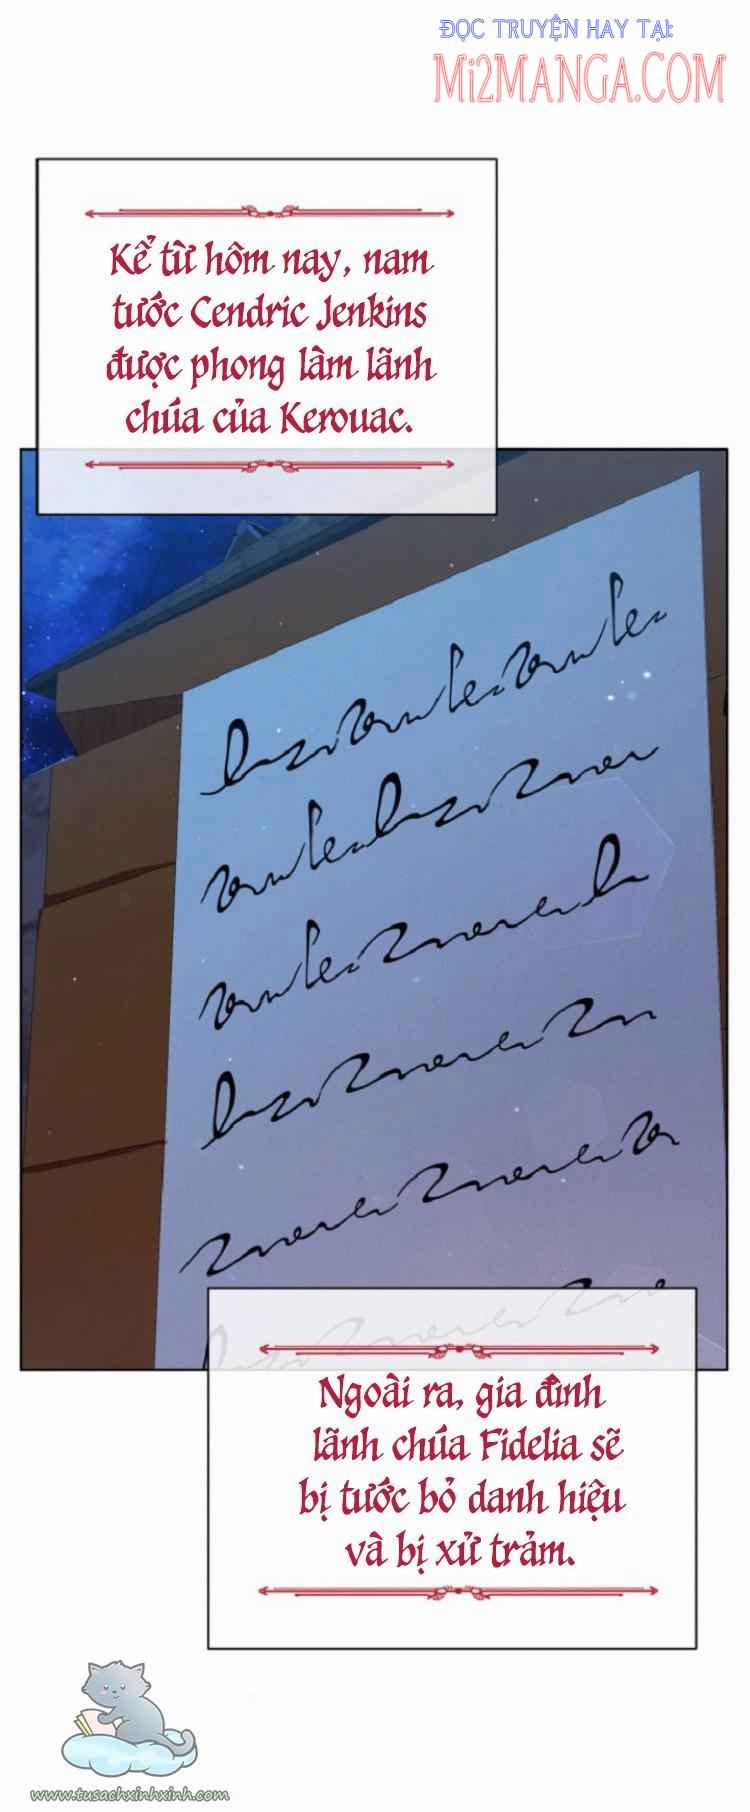 ĐỌC TRUYỆN HAY TẠI:
MI2MANGA.COM
Kể từ hôm nay, nam
tước Cendric Jenkins
được phong làm lãnh
chúa của Kerouac.
Ngoài ra, gia đình
lãnh chúa Fidelia sẽ
bị tước bỏ danh hiệu
và bị xử trảm.
www.tusachxinhxinh.com